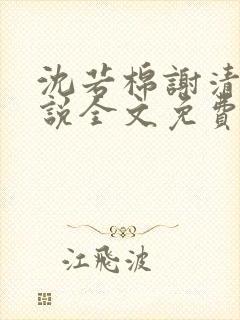 沈若棉謝清
說全文免費
江飛波